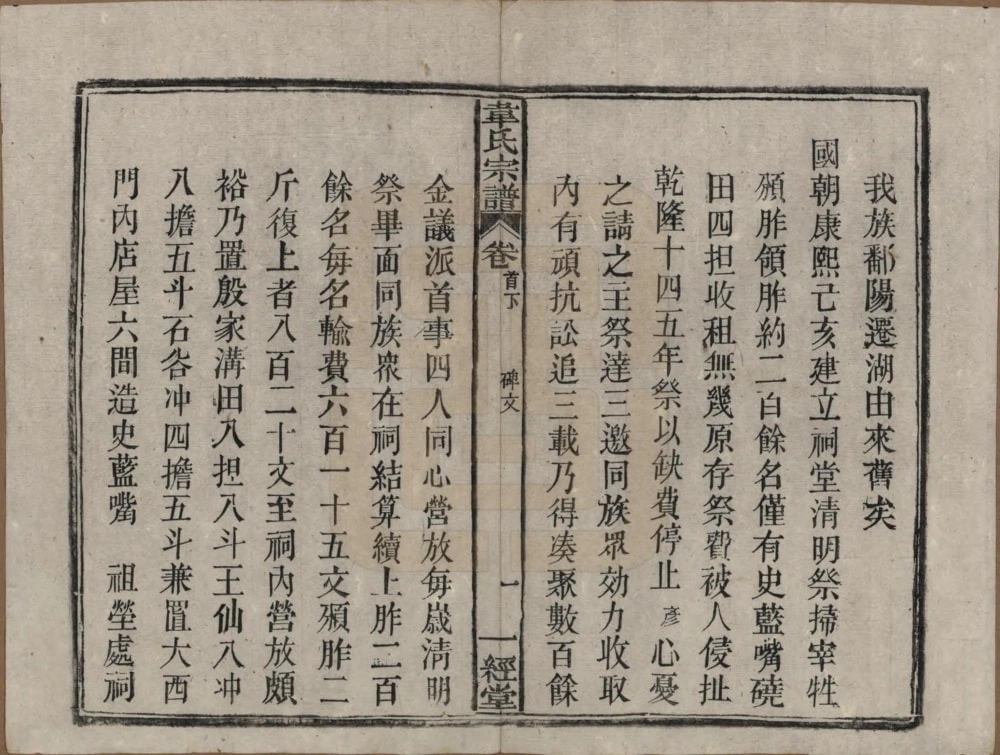 我族鄱陽遷湖由來舊矣
國朝康熙己亥建立祠堂清明祭掃宰牲
頒胙領胙約二百餘名僅有史藍嘴磽
田四担收租無幾原存祭費被人侵扯
乾隆十四五年祭以缺費停止彦心憂
之請之主祭達三邀同族眾効力收取
內有頑抗訟追三載乃得凑聚數百餘
韋氏宗譜
卷首下
碑文
一
一經堂
金議派首事四人同心營放每歲清明
祭畢面同族衆在祠結算續上胙二百
餘名每名輸費六百一十五文頒胙二
斤復上者八百二十文至祠內營放頗
裕乃置殷家溝田八担八斗王仙八冲
八擔五斗石咎冲四擔五斗兼置大西
門內店屋六間造史藍嘴 祖塋處祠